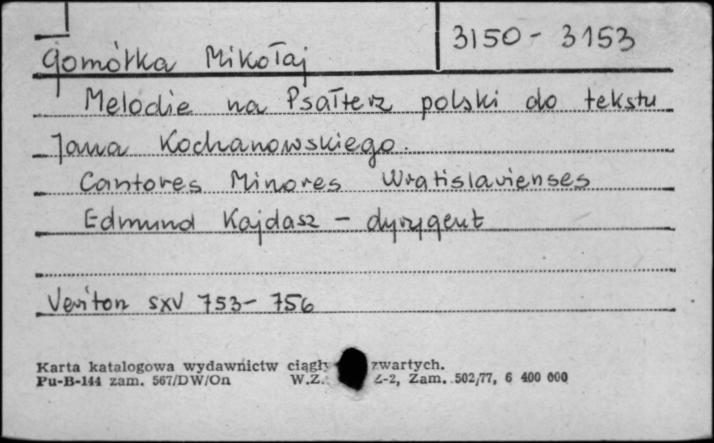 3150 - 3153
Gomółka Mikołaj
Melodie na Psałterz polski do tekstu
Jana Kochanowskiego.
Cantores Minores Wratislavienses
Edmund Kajdasz - dyrygent
Veriton SXV 753- 756
Karta katalogowa wydawnictw ciągły zwartych.
Pu-B-144 zam. 567/DW/On W.Z. Z-2, Zam. 502/77, 6 400 000